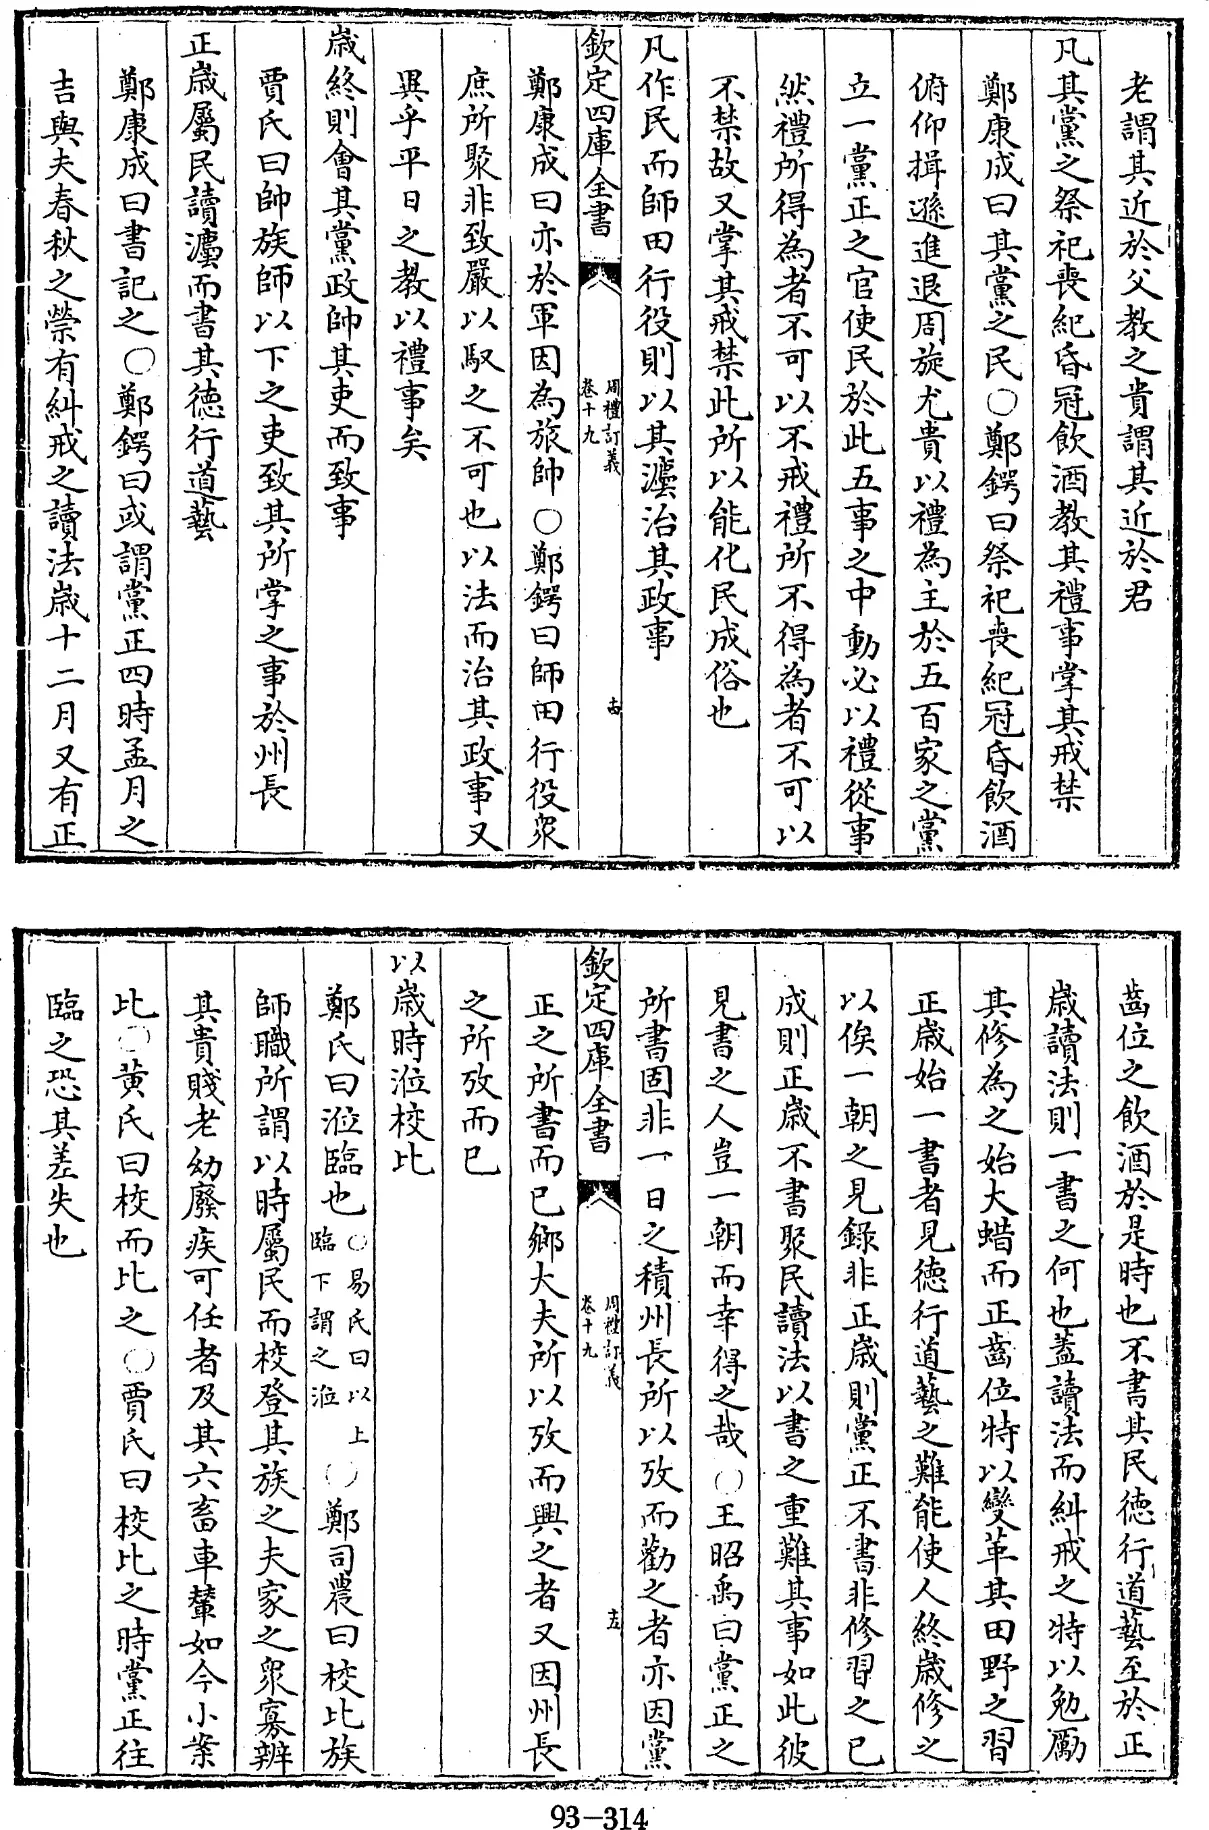 老謂其近於父教之貴謂其近於君
凡其黨之祭祀喪紀昏冠飲酒教其禮事掌其戒禁
鄭康成曰其黨之民○鄭鍔曰祭祀喪紀冠昏飲酒
俯仰揖遜進退周旋尤貴以禮為主於五百家之黨
立一黨正之官使民於此五事之中動必以禮從事
然禮所得為者不可以不戒禮所不得為者不可以
不禁故又掌其戒禁此所以能化民成俗也
凡作民而師田行役則以其灋治其政事
欽定四庫全書
周禮訂義
卷十九
十四
鄭康成曰亦於軍因為旅帥○鄭鍔曰師田行役衆
庶所聚非致嚴以馭之不可也以法而治其政事又
異乎平日之教以禮事矣
歲終則會其黨政帥其吏而致事
賈氏曰帥族師以下之吏致其所掌之事於州長
正歲屬民讀灋而書其德行道藝
鄭康成曰書記之○鄭鍔曰或謂黨正四時孟月之
吉與夫春秋之禜有糾戒之讀法歲十二月又有正
齒位之飲酒於是時也不書其民德行道藝至於正
歲讀法則一書之何也蓋讀法而糾戒之特以勉勵
其修為之始大蜡而正齒位特以變革其田野之習
正歲始一書者見德行道藝之難能使人終歲修之
以俟一朝之見錄非正歲則黨正不書非修習之已
成則正歲不書聚民讀法以書之重難其事如此彼
見書之人豈一朝而幸得之哉○王昭禹曰黨正之
所書固非一日之積州長所以攷而勸之者亦因黨
欽定四庫全書
周禮訂義
卷十九
十五
正之所書而已鄉大夫所以攷而興之者又因州長
之所攷而已
以歲時涖校比
鄭氏曰涖臨也○易氏曰以上臨下謂之涖○鄭司農曰校比族
師職所謂以時屬民而校登其族之夫家之衆寡辨
其貴賤老幼廢疾可任者及其六畜車輦如今小案
比○黃氏曰校而比之○賈氏曰校比之時黨正往
臨之恐其差失也
93-314